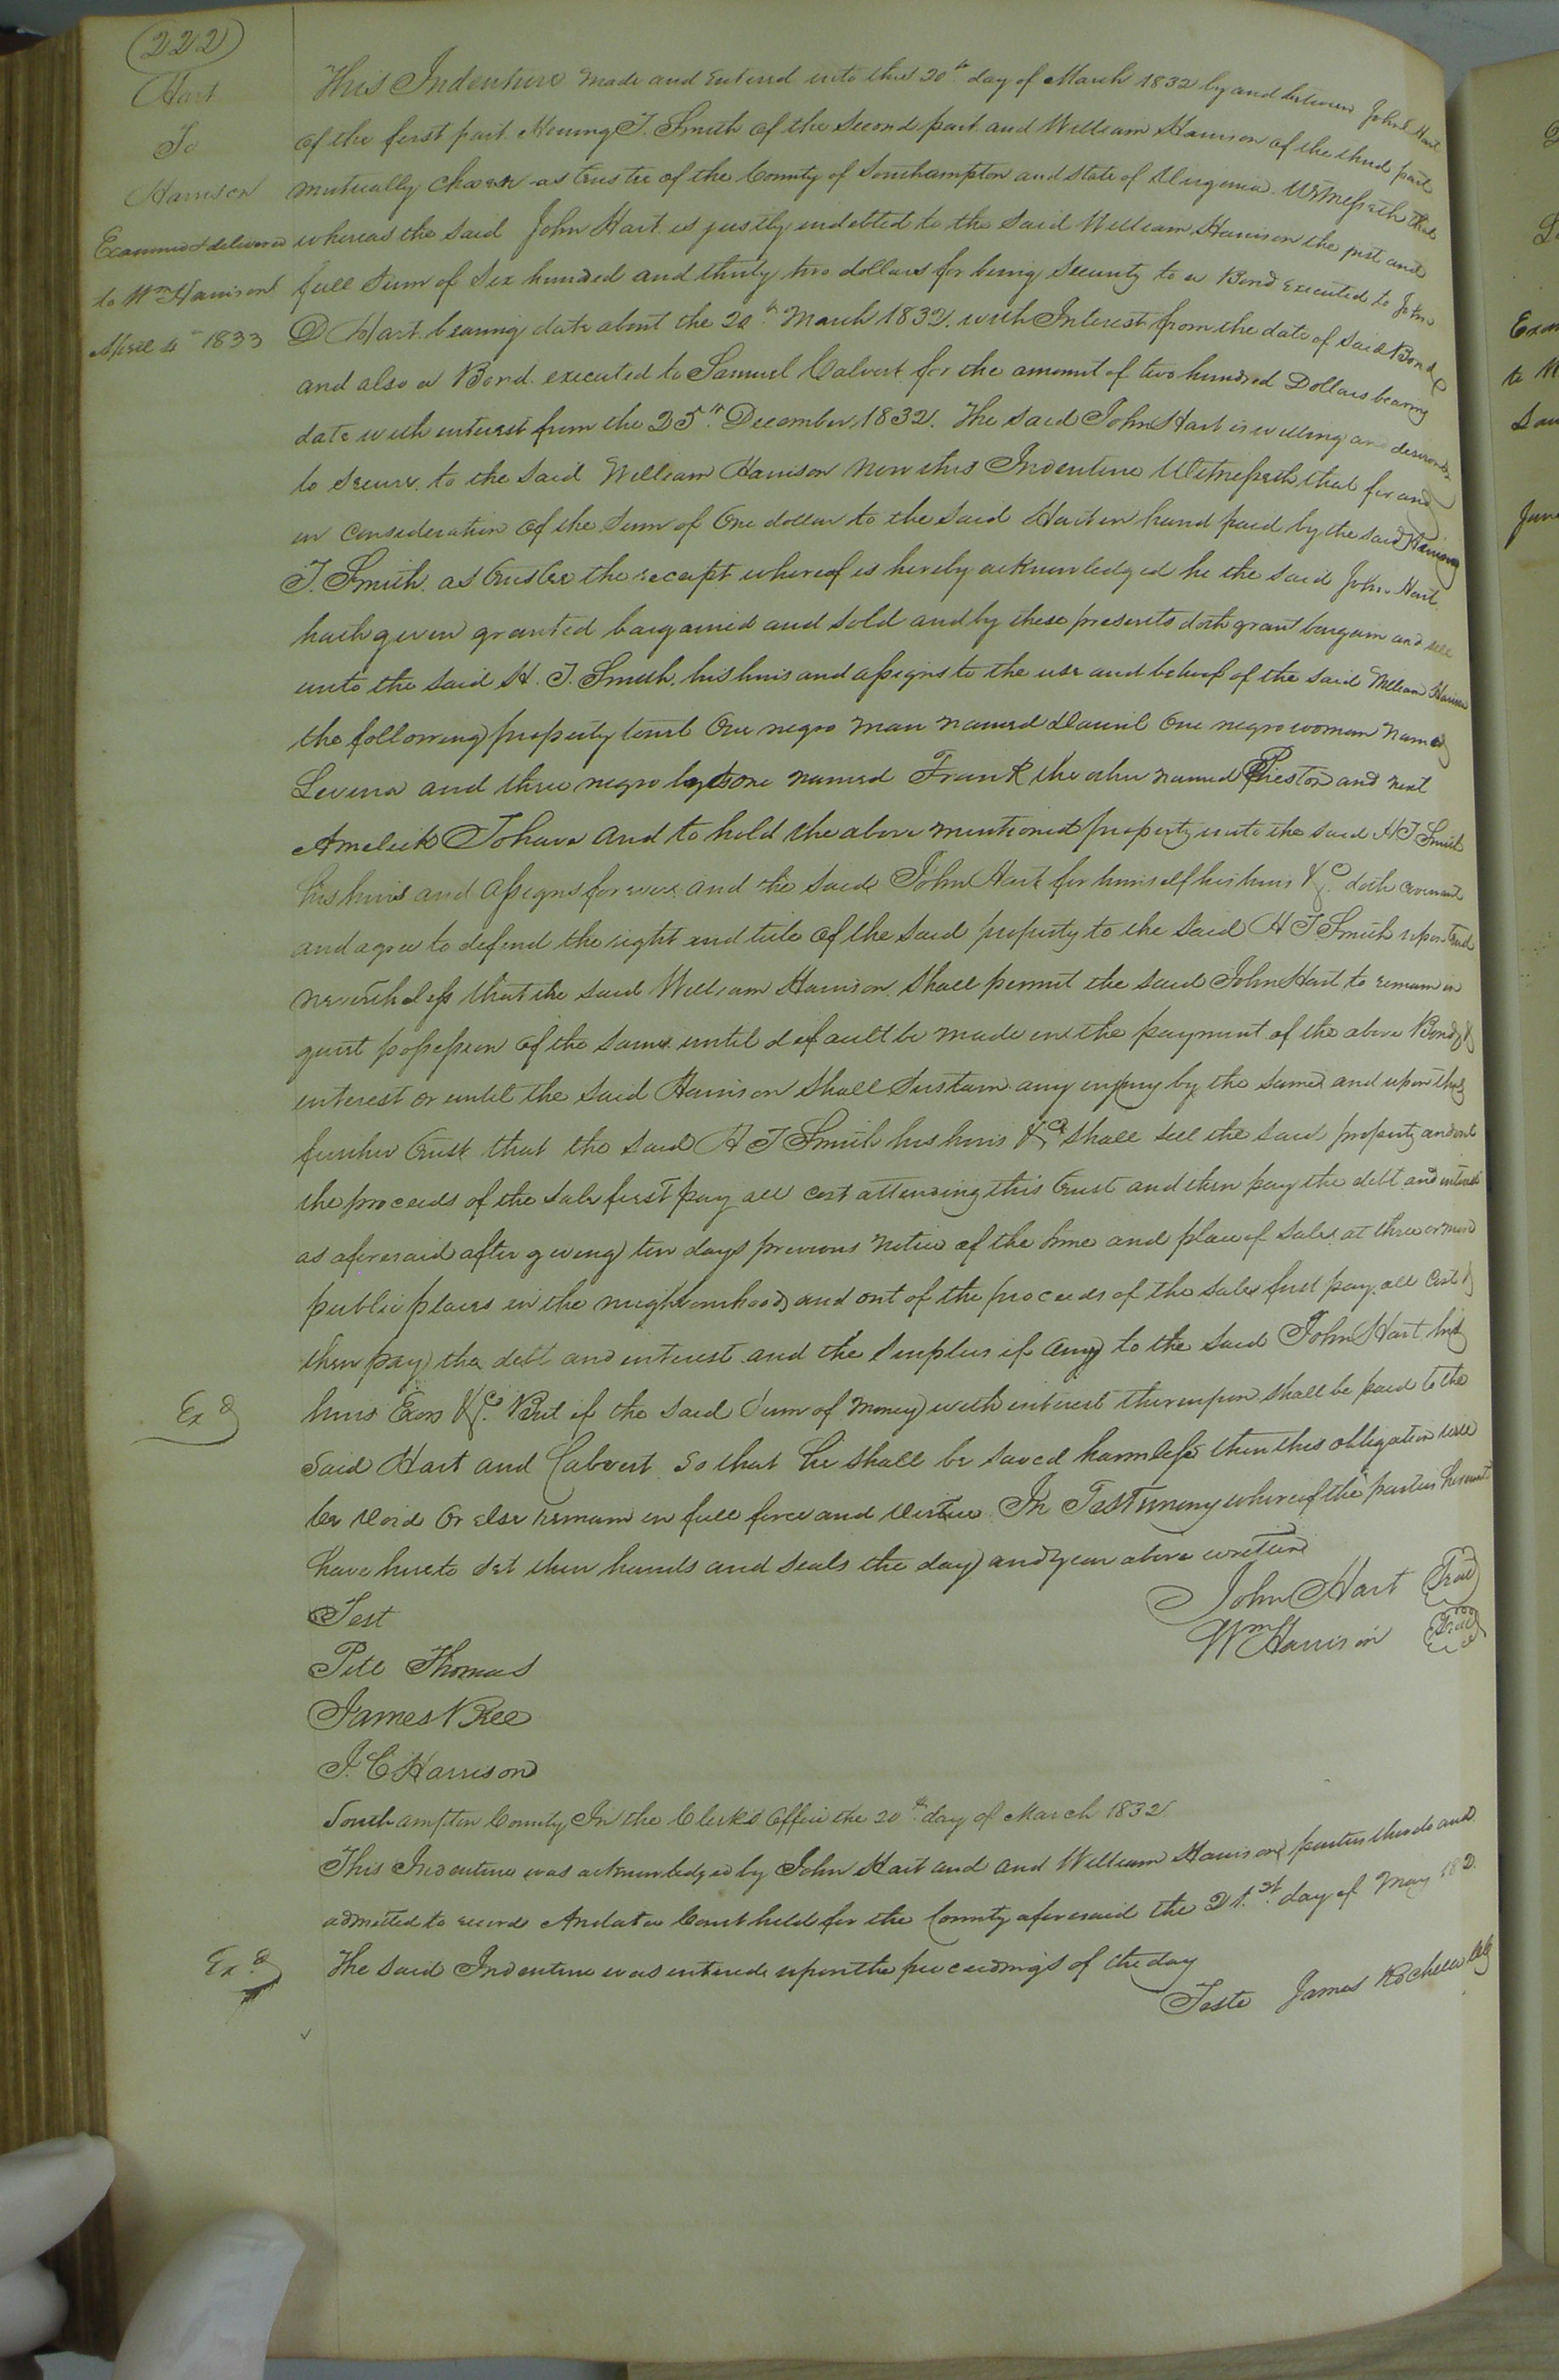 222
Hart
To
Harrison
Examined & delivered
to Wm Harrison
April 4th 1833
This Indenture made and entered into this 20th day of March 1832 by and between John Hart
of the first part. Herring T. Smith of the Second part and William Harrison of the third part
mutually chosen as trustee of the County of Southampton and State of Virginia. Witnesseth that
whereas the said John Hart is justly indebted to the said William Harrison the just and
full Sum of Six hundred and thirty two dollars for being Security to a Bond executed to John
D Hart bearing date about the 20th March 1832. with Interest from the date of said Bond &
and also a Bond executed to Samuel Calvert for the amount of two hundred Dollars bearing
date with interest from the 25th December 1832. The said John Hart is willing and desirous
to secure to the said William Harrison Now this Indenture Witnesseth that for and
in consideration of the Sum of One dollar to the said Hart in hand paid by the said Herring
T. Smith as trustee the receipt whereof is hereby acknowledged he the said John Hart
hath given granted bargained and sold and by these presents doth grant bargain and sell
unto the said H. T. Smith, his heirs and assigns to the use and behoof of the said William Harrison
the following property towit One negro man named Daniel One negro woman named
Levina and three negro boys one named Frank the other named Preston and next
Ameleck To have and to hold the above mentioned property unto the said H T Smith
his heirs and assigns forever and the said John Hart for himself his heirs &c. doth covenant
and agree to defend the right and title of the said property to the said H T Smith upon trust
nevertheless that the said William Harrison shall permit the said John Hart to remain in
quiet possession of the same until default be made in the payment of the above Bond &
interest or until the said Harrison shall sustain any injury by the same and upon this
further trust that the said H T Smith his heirs &c shall sell the said property and out
the proceeds of the sale first pay all cost attending this trust and then pay the debt and interest
as aforesaid after giving ten days previous notice of the time and place of sale at three or more
public places in the neighbourhood and out of the proceeds of the sales first pay all cost &
then pay the debt and interest and the surplus if any to the said John Hart his
Exd
heirs Exors &c. But if the said Sum of money with interest thereupon shall be paid to the
said Hart and Calvert so that he shall be saved harmless then this obligation will
be void or else remain in full force and virtue. In Testimony whereof the parties hereunto
have hereto set their hands and seals the day and year above written
John Hart Seal
Test
Wm Harrison Seal
Pete Thomas
James
J. C Harrison
Southampton County In the Clerks Office the 20th day of March 1832
This Indenture was acknowledged by John Hart and and William Harrison parties thereto and
admitted to record And at a Court held for the County aforesaid the 21.st day of May
Exd
The said Indenture was entered upon the proceedings of the day
Teste James Rochelle Clk